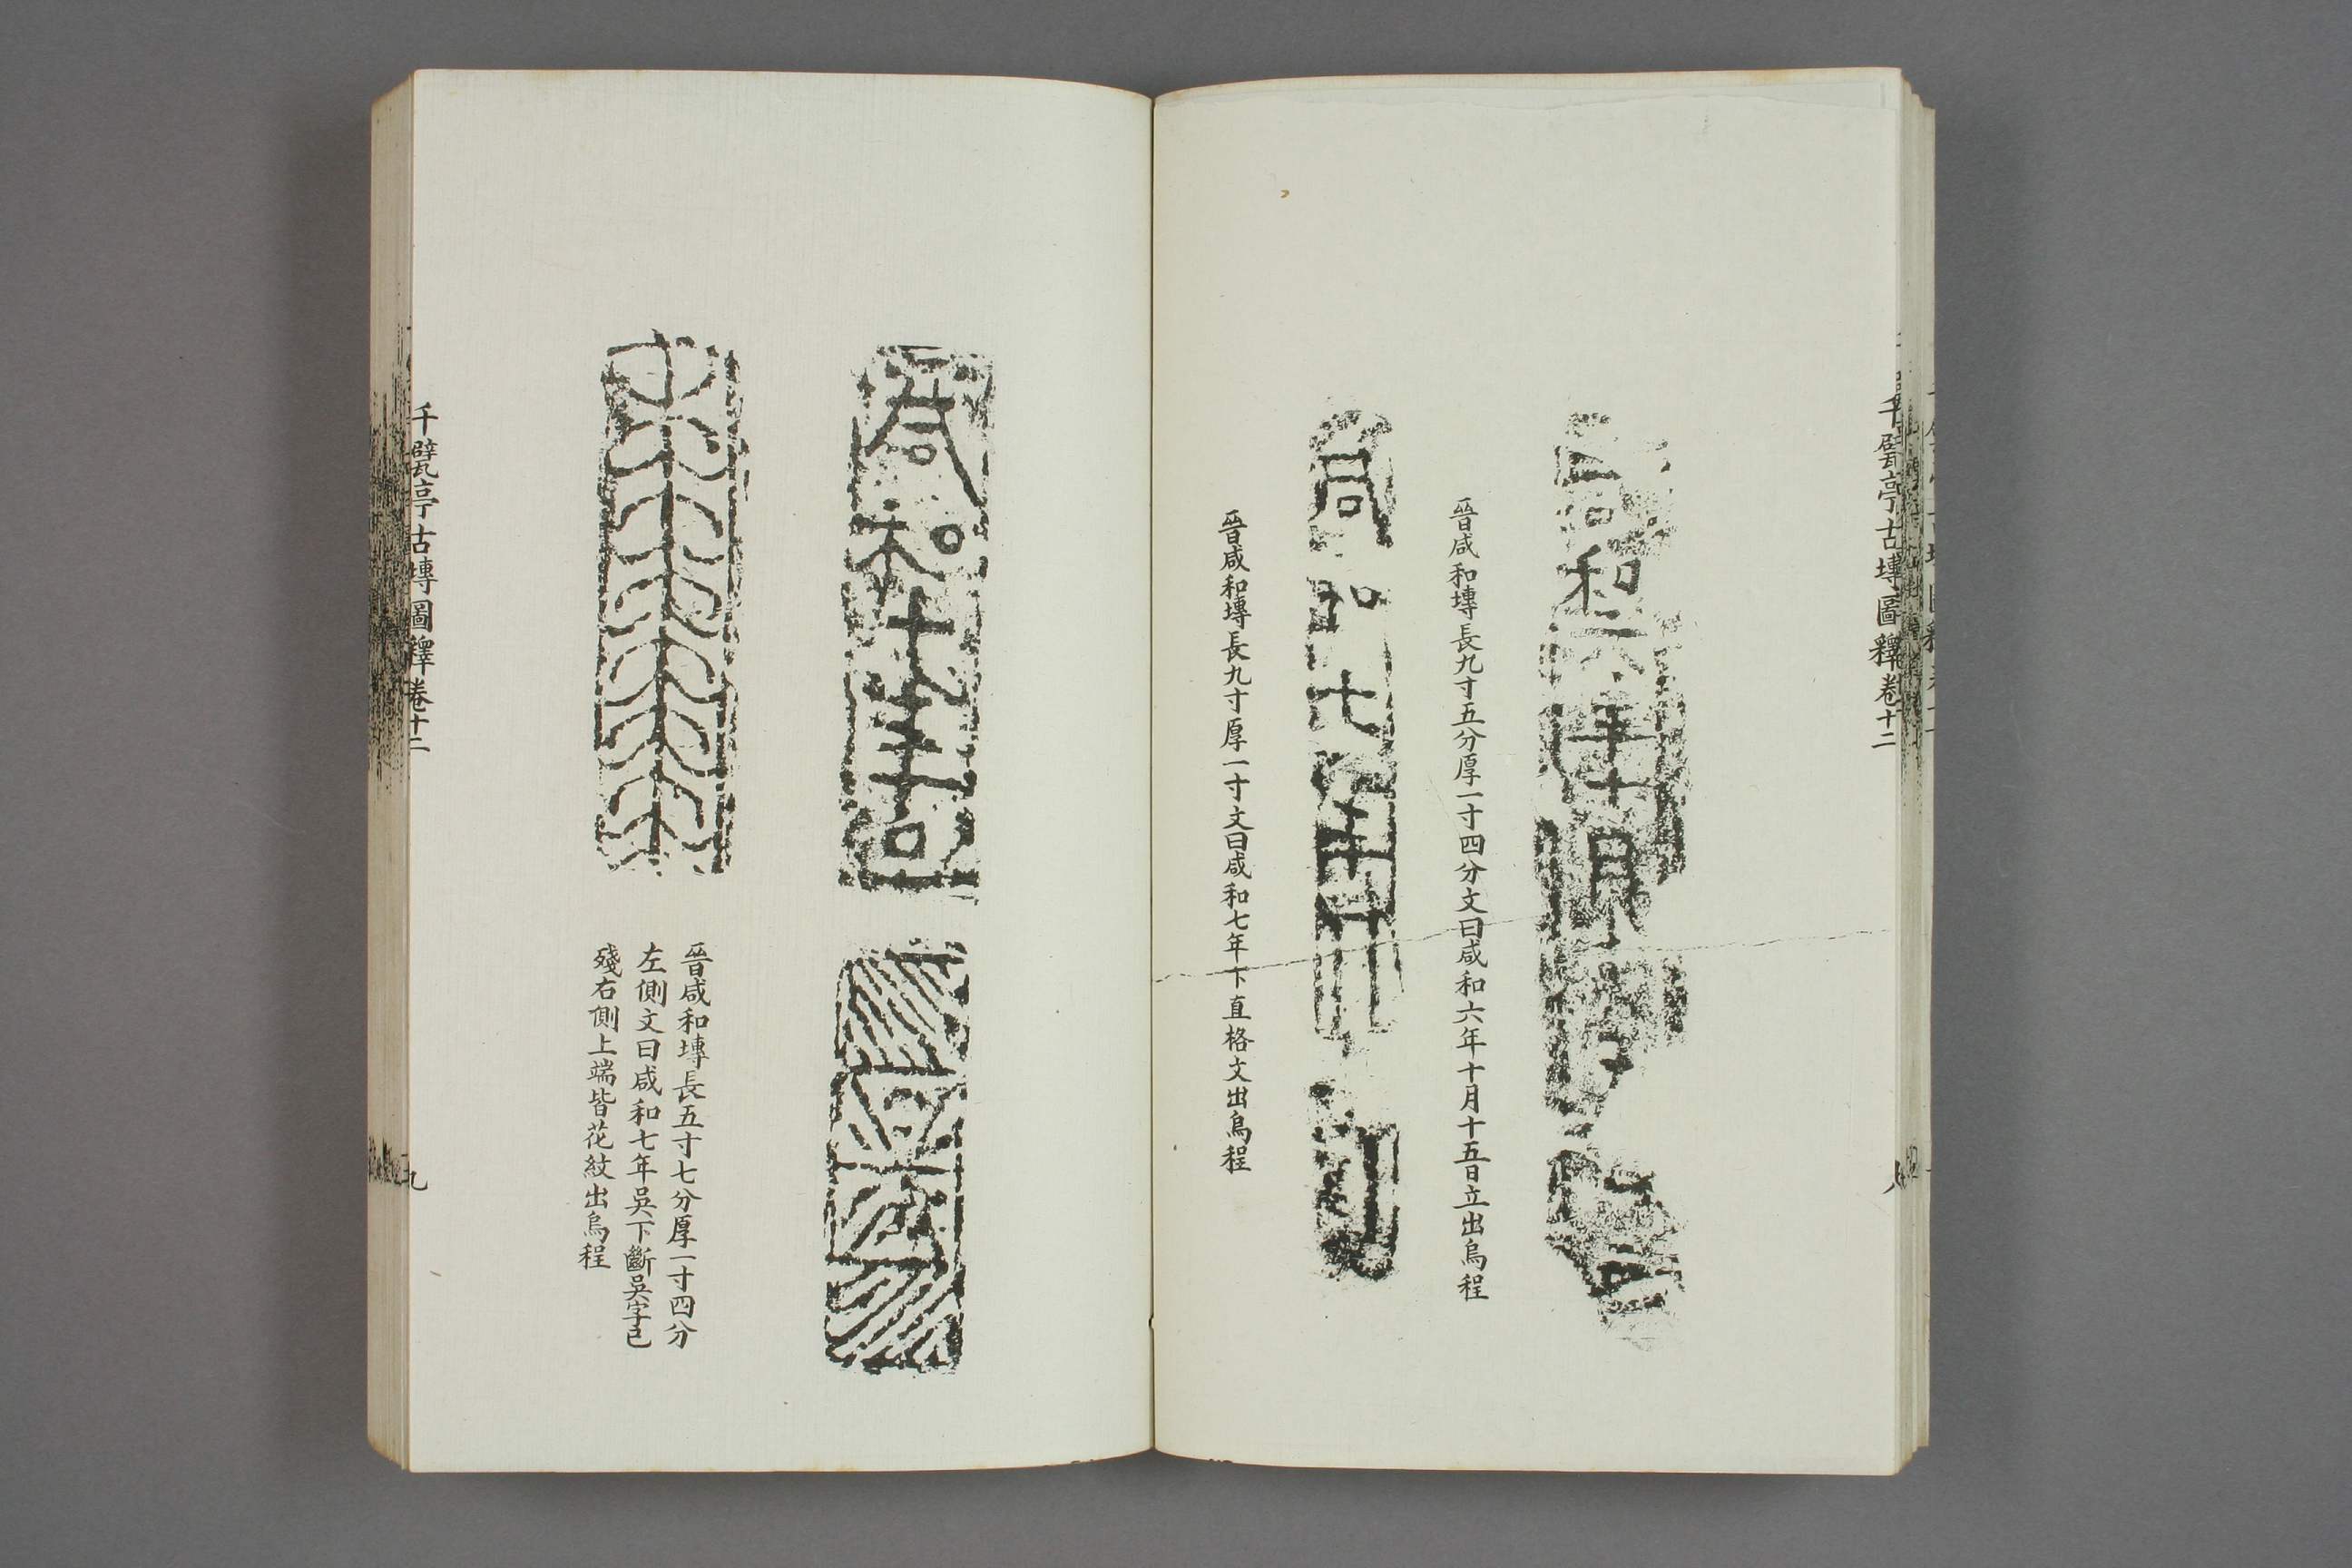 千甓亭古塼圖釋卷十二
八
咸和六年十月
晉咸和塼長九寸五分厚一寸四分文曰咸和六年十月十五日立出烏程
咸和七年
晉咸和塼長九寸厚一寸文曰咸和七年下直格文出烏程
咸和七年吳
晉咸和塼長五寸七分厚一寸四分
左側文曰咸和七年吳下斷吳字已
殘右側上端皆花紋出烏程
千甓亭古塼圖釋卷十二
九